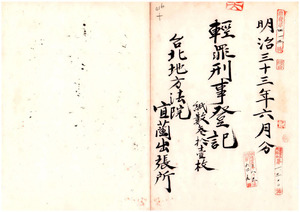 明治三十三年六月分
輕罪刑事登記
紙數卷拾壹枚
台北地方法院
宜蘭出張所